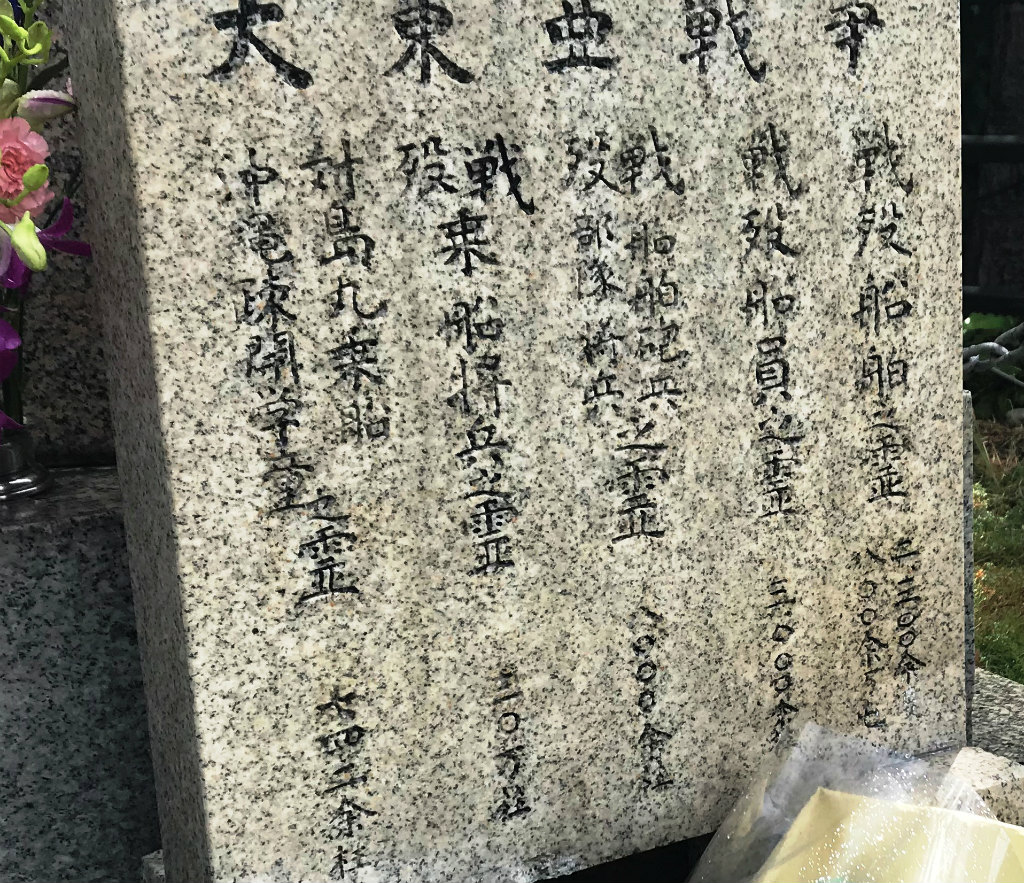 大東亜戦争
戦歿船舶之霊 三三〇〇余
八〇〇余
戦歿船員之霊
戦歿 船舶砲兵
部隊衛兵 之霊 八〇〇〇余柱
戦歿乗船将兵之霊 二〇万柱
対島丸乗船
沖縄疎開学童 之霊 七四二余柱